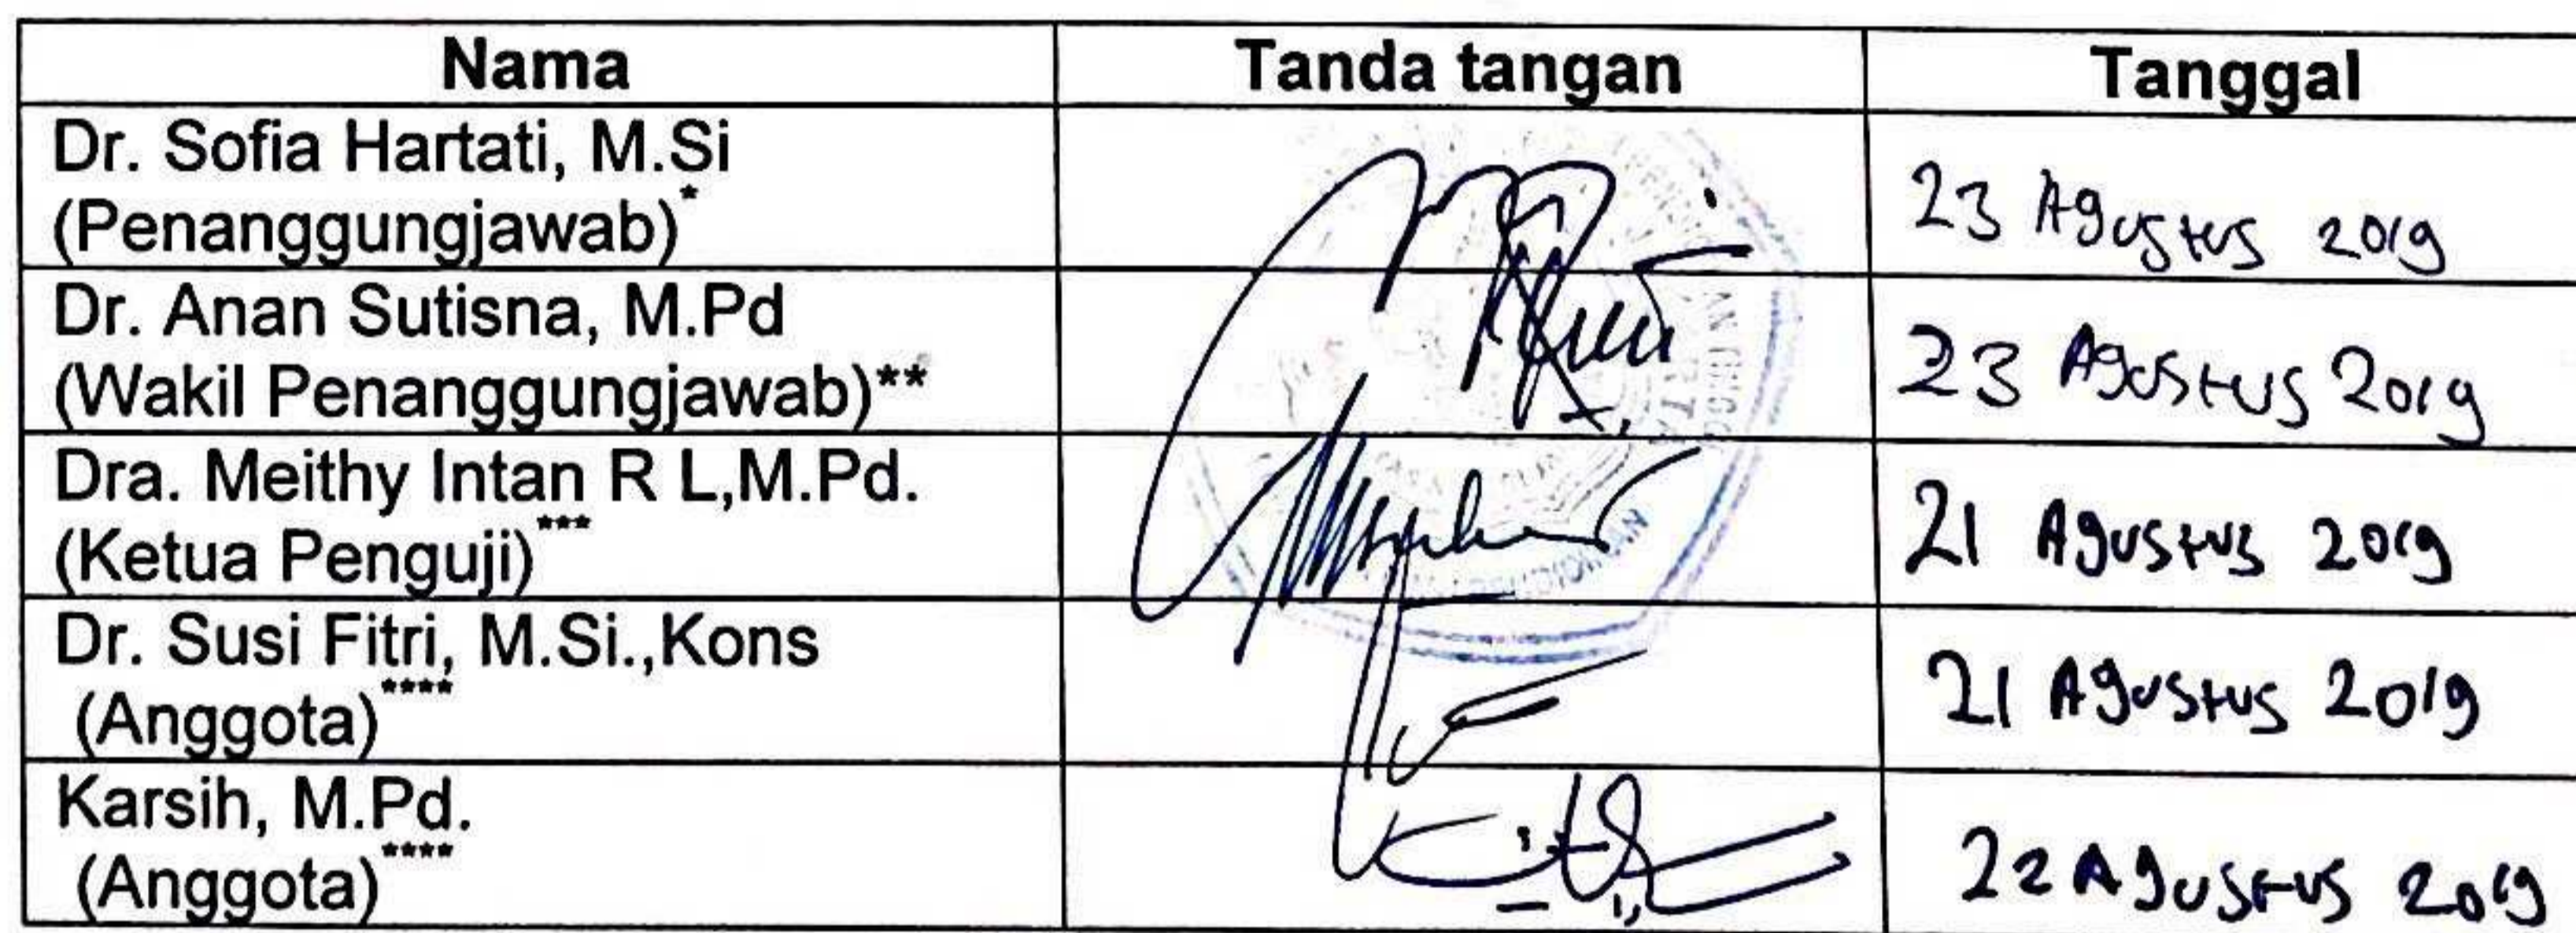 Nama Tanda tangan Tanggal
Dr. Sofia Hartati, M.Si
(Penanggungjawab)* 23 Agustus 2019
Dr. Anan Sutisna, M.Pd
(Wakil Penanggungjawab)** 23 Agustus 2019
Dra. Meithy Intan R L,M.Pd.
(Ketua Penguji)*** 21 Agustus 2019
Dr. Susi Fitri, M.Si.,Kons
(Anggota)**** 21 Agustus 2019
Karsih, M.Pd.
(Anggota)**** 22 Agustus 2019